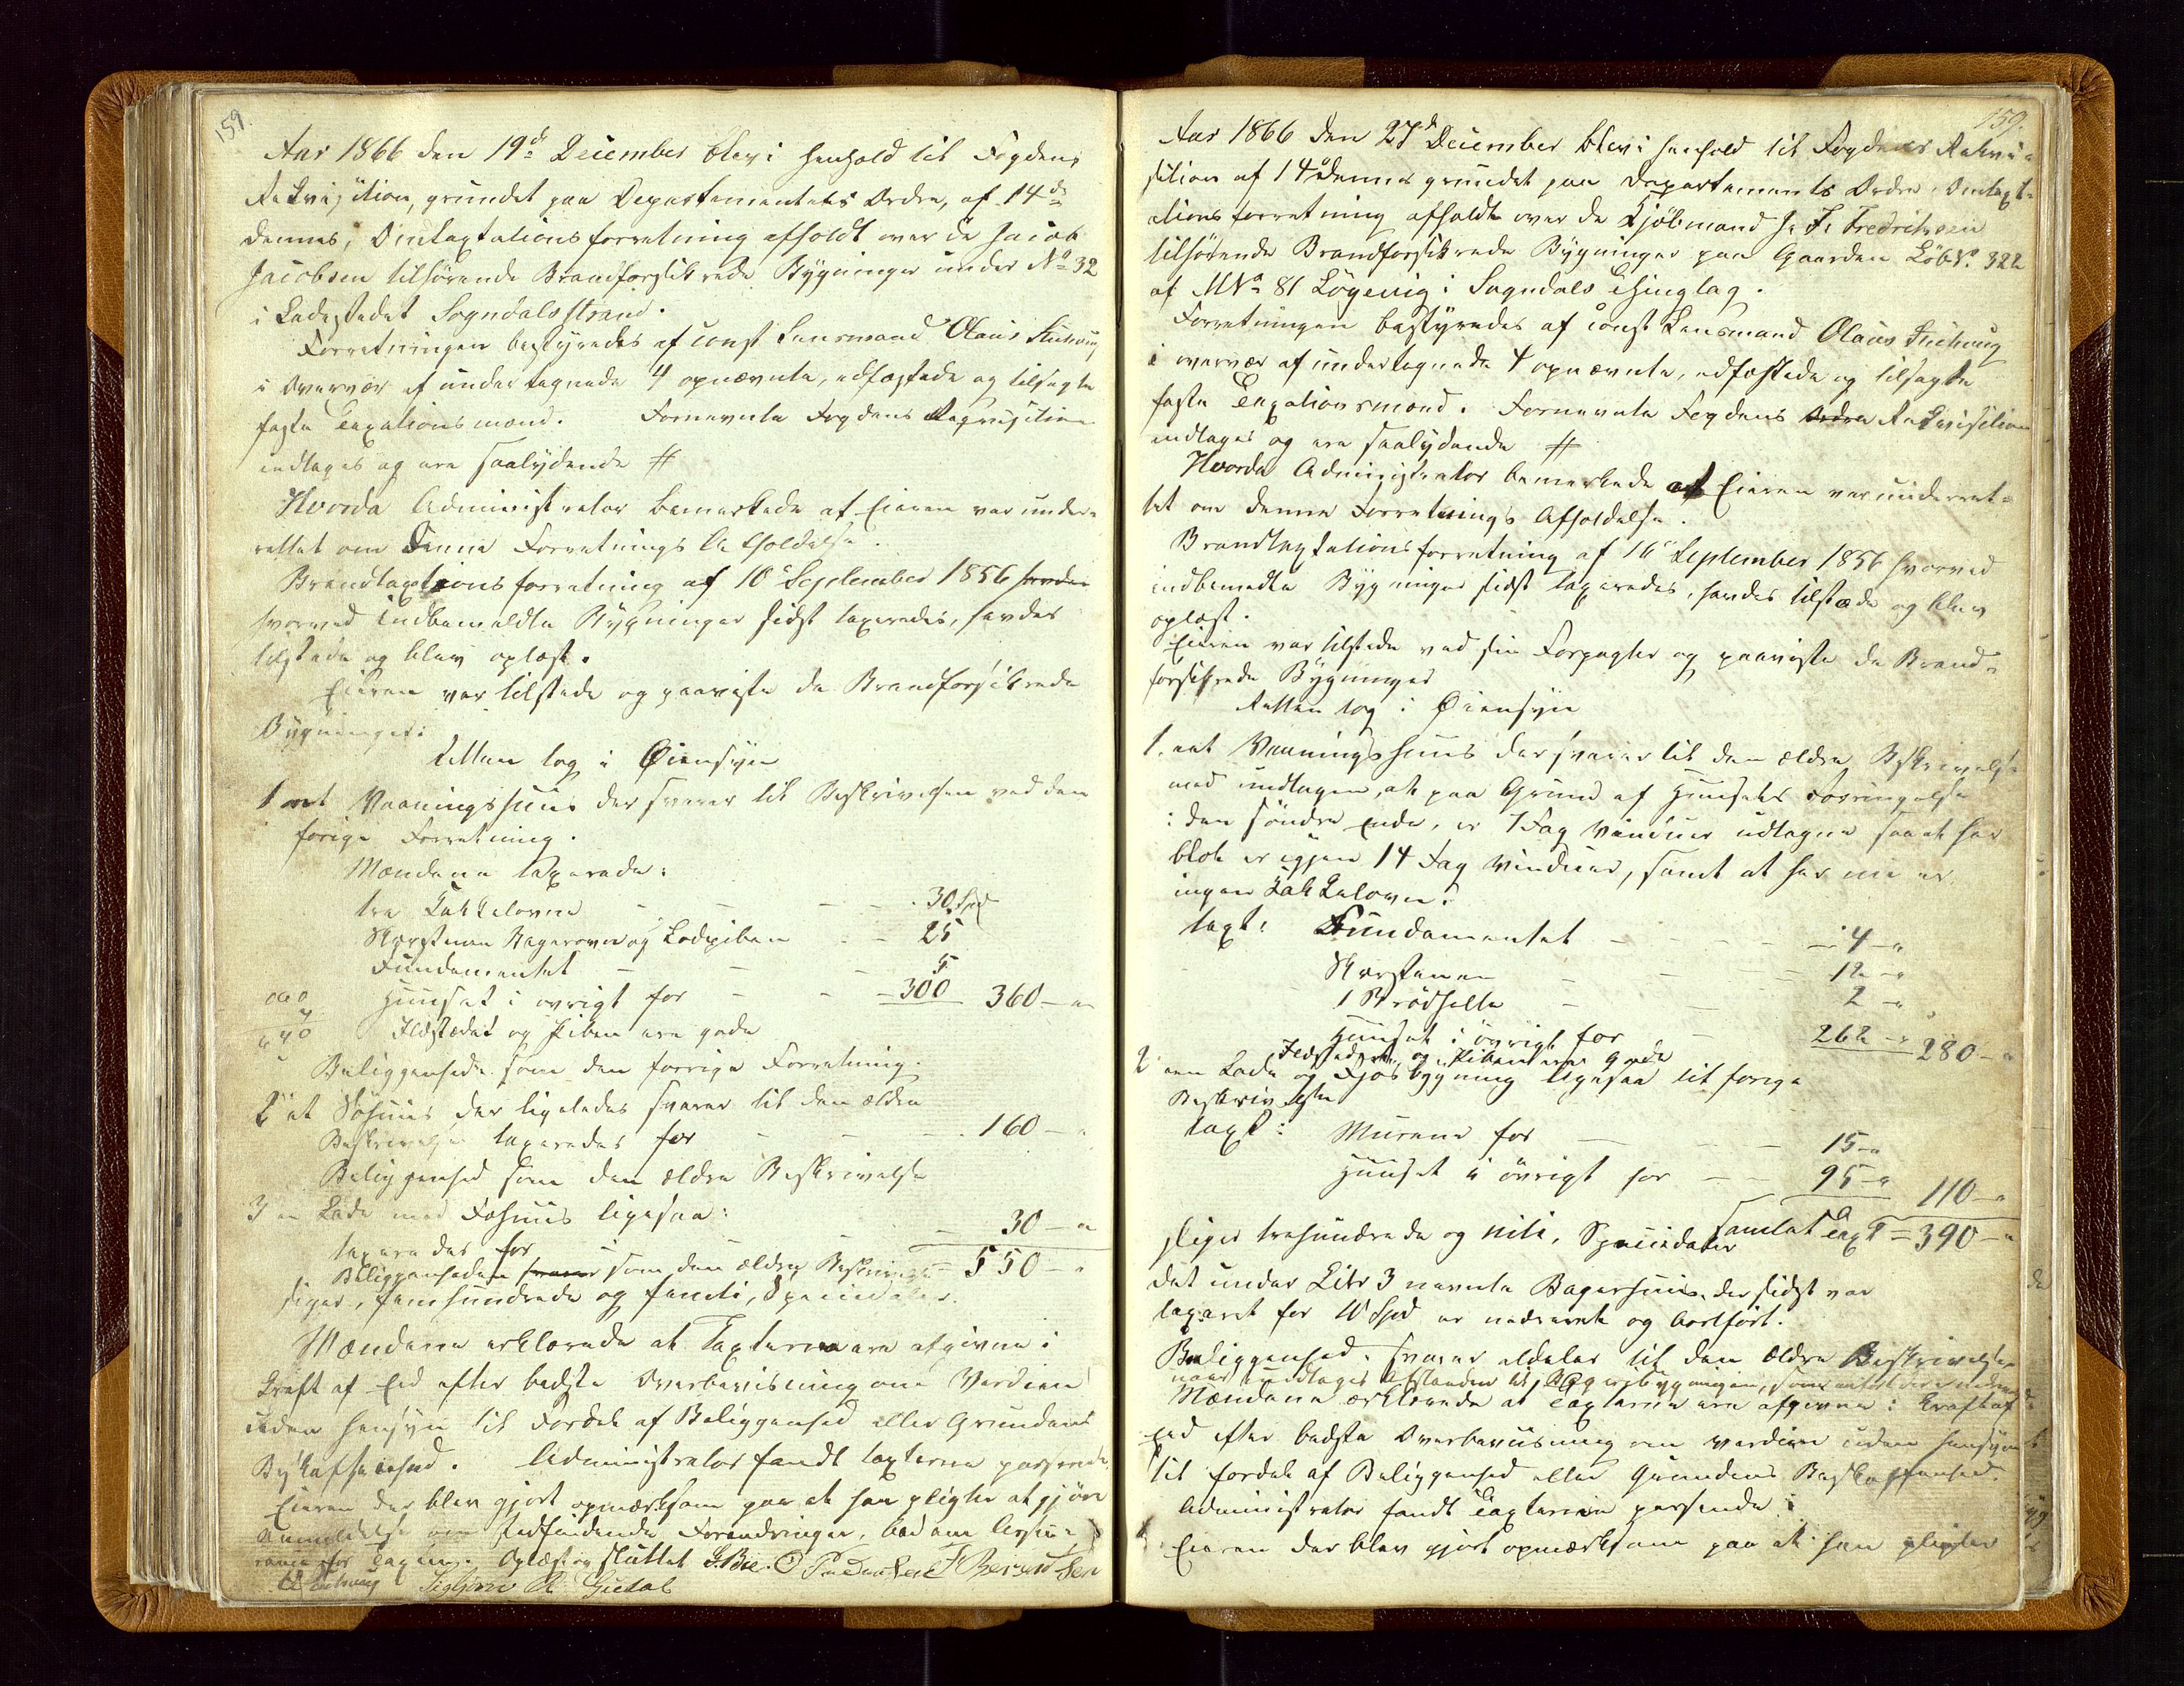 159.
Aar 1866 den 19de December blev i Henhold til Fogdens
Rekvisition, grundet paa Departementets Ordre, af 14de
dennes, Omtaxtationsforretning afholdt over de Jacob
Jacobsen tilhørende Brandforsikrede Bygninger under No 32
i Ladestedet Sogndalsstrand.
Forretningen bestyredes af const Lensmand Olaus
i Overvær af undertegnede 4 opnævnte, edfæstede og tilsagte
faste Taxationsmænd. Fornævnte Fogdens Requisition
indtages og er saalydende #
Hvorda Administrator bemærkede at Eieren var under-
rettet om denne Forretnings Afholdelse.
Brandtaxtionsforretning af 10de September 1856
hvorved indbemeldte Bygninger sidst taxeredes, havdes
tilstede og blev oplæst.
Eieren var tilstede og paaviste de Brandforsikrede
Bygninger:
Retten tog i Øiensyn
1 et Vaaningshuus der svarer til Beskrivelsen ved den
forige Forretning.
Mændene taxerede:
tre Kakkelovne - - - 30 Spd
Skorstenen Bagerovn og Lodpiben - - 25
Fundamentet - - - 5
Huuset i øvrigt for - - - 300 360 - "
Ildstedet og Piben ere gode
Beliggenhede som den forrige Forretning.
2 et Søhuus der ligeledes svarer til den ældre
Beskrivelse taxeredes for - - - 160 - "
Beliggenhed som den ældre Beskrivelse
3 en Lade med Fæhuus ligesaa:
taxeredes for - 30 - "
Beliggenheden som den ældre Beskrivelse = 550 - "
siger, femhundrede og femti, Speciedaler.
Mændene erklærede at Taxterne ere afgivne i
Kraft af Eed efter bedste Overbeviisning om Værdien
uden Hensyn til Fordel af Beliggenhed eller Grundens
Beskaffenhed. Administrator fandt Taxterne passende.
Eieren der blev gjort opmærksom paa at han pligter at gjøre
Anmeldelse om stedfindende Forandringer, bad om
for Taxten. Oplæst og sluttet
159.
Aar 1866 den 27de December blev i Henhold til Fogdens Rekvi-
sition af 14de dennes grundet paa Departements Ordre, Omtaxt-
ationsforretning afholdt over de Kjøbmand J. F. Fredriksen
tilhørende Brandforsikrede Bygninger paa Gaarden Løb No. 322
af MNo 81 Løgevig i Sogndals Thinglag.
Forretningen bestyredes af const Lensmand Olaus
i overvær af undertegnede 4 opnævnte, edfæstede og tilsagte
faste Taxationsmænd. Fornævnte Fogdens Ordre Rekvisition
indtages og ere saalydende #
Hvorda Administrator bemærkede at Eieren var underret-
tet om denne Forretnings Afholdelse.
Brandtaxtationsforretning af 16de September 1856 hvorved
indbemeldte Bygninger sidst taxeredes, havdes tilstæde og blev
oplæst.
Eieren var tilstede ved sin Forpagter og paaviste de Brand-
forsikrede Bygninger
Retten tog i Øiensyn
1. et Vaaningshuus der svarer til den ældre Beskrivelse
med undtagen, at paa Grund af Huusets Forringelse
i den søndre Ende, er 1 Fag Vinduer udtagne saa at her
blot er igjen 14 Fag Vinduer, samt at her nu er
ingen Kakkelovn.
taxt: Fundamentet - - - 4 - "
Skorstenen - - - 12 - "
1 Brødhelle - - 2 - "
Huuset i øvrigt for - 262 - " 280 - "
Ildstederne og Piben ere gode
2 en Lade og Fjøsbygning ligesaa til forige
Beskrivelse
taxt: Murene for - - - 15 - "
Huuset i øvrigt for - - 95 - " 110 - "
Samlet Taxt = 390 - "
siger trehundrede og niti, Speciedaler
det under Litr 3 nævnte Bagerhuus, der sidst var
taxeret for 10 Spd er nedrevet og bortført.
Beliggenhed, svarer aldeles til den ældre Beskrivelse
naar undtages Afstanden til Bagerbygningen, som
Mændene erklærede at Taxterne ere afgivne i Kraft af
Eed efter bedste Overbeviisning om Værdien uden Hensyn
til Fordel af Beliggenhed eller Grundens Beskaffenhed.
Administrator fandt Taxterne passende i
Eieren der blev gjort opmærksom paa at han pligter